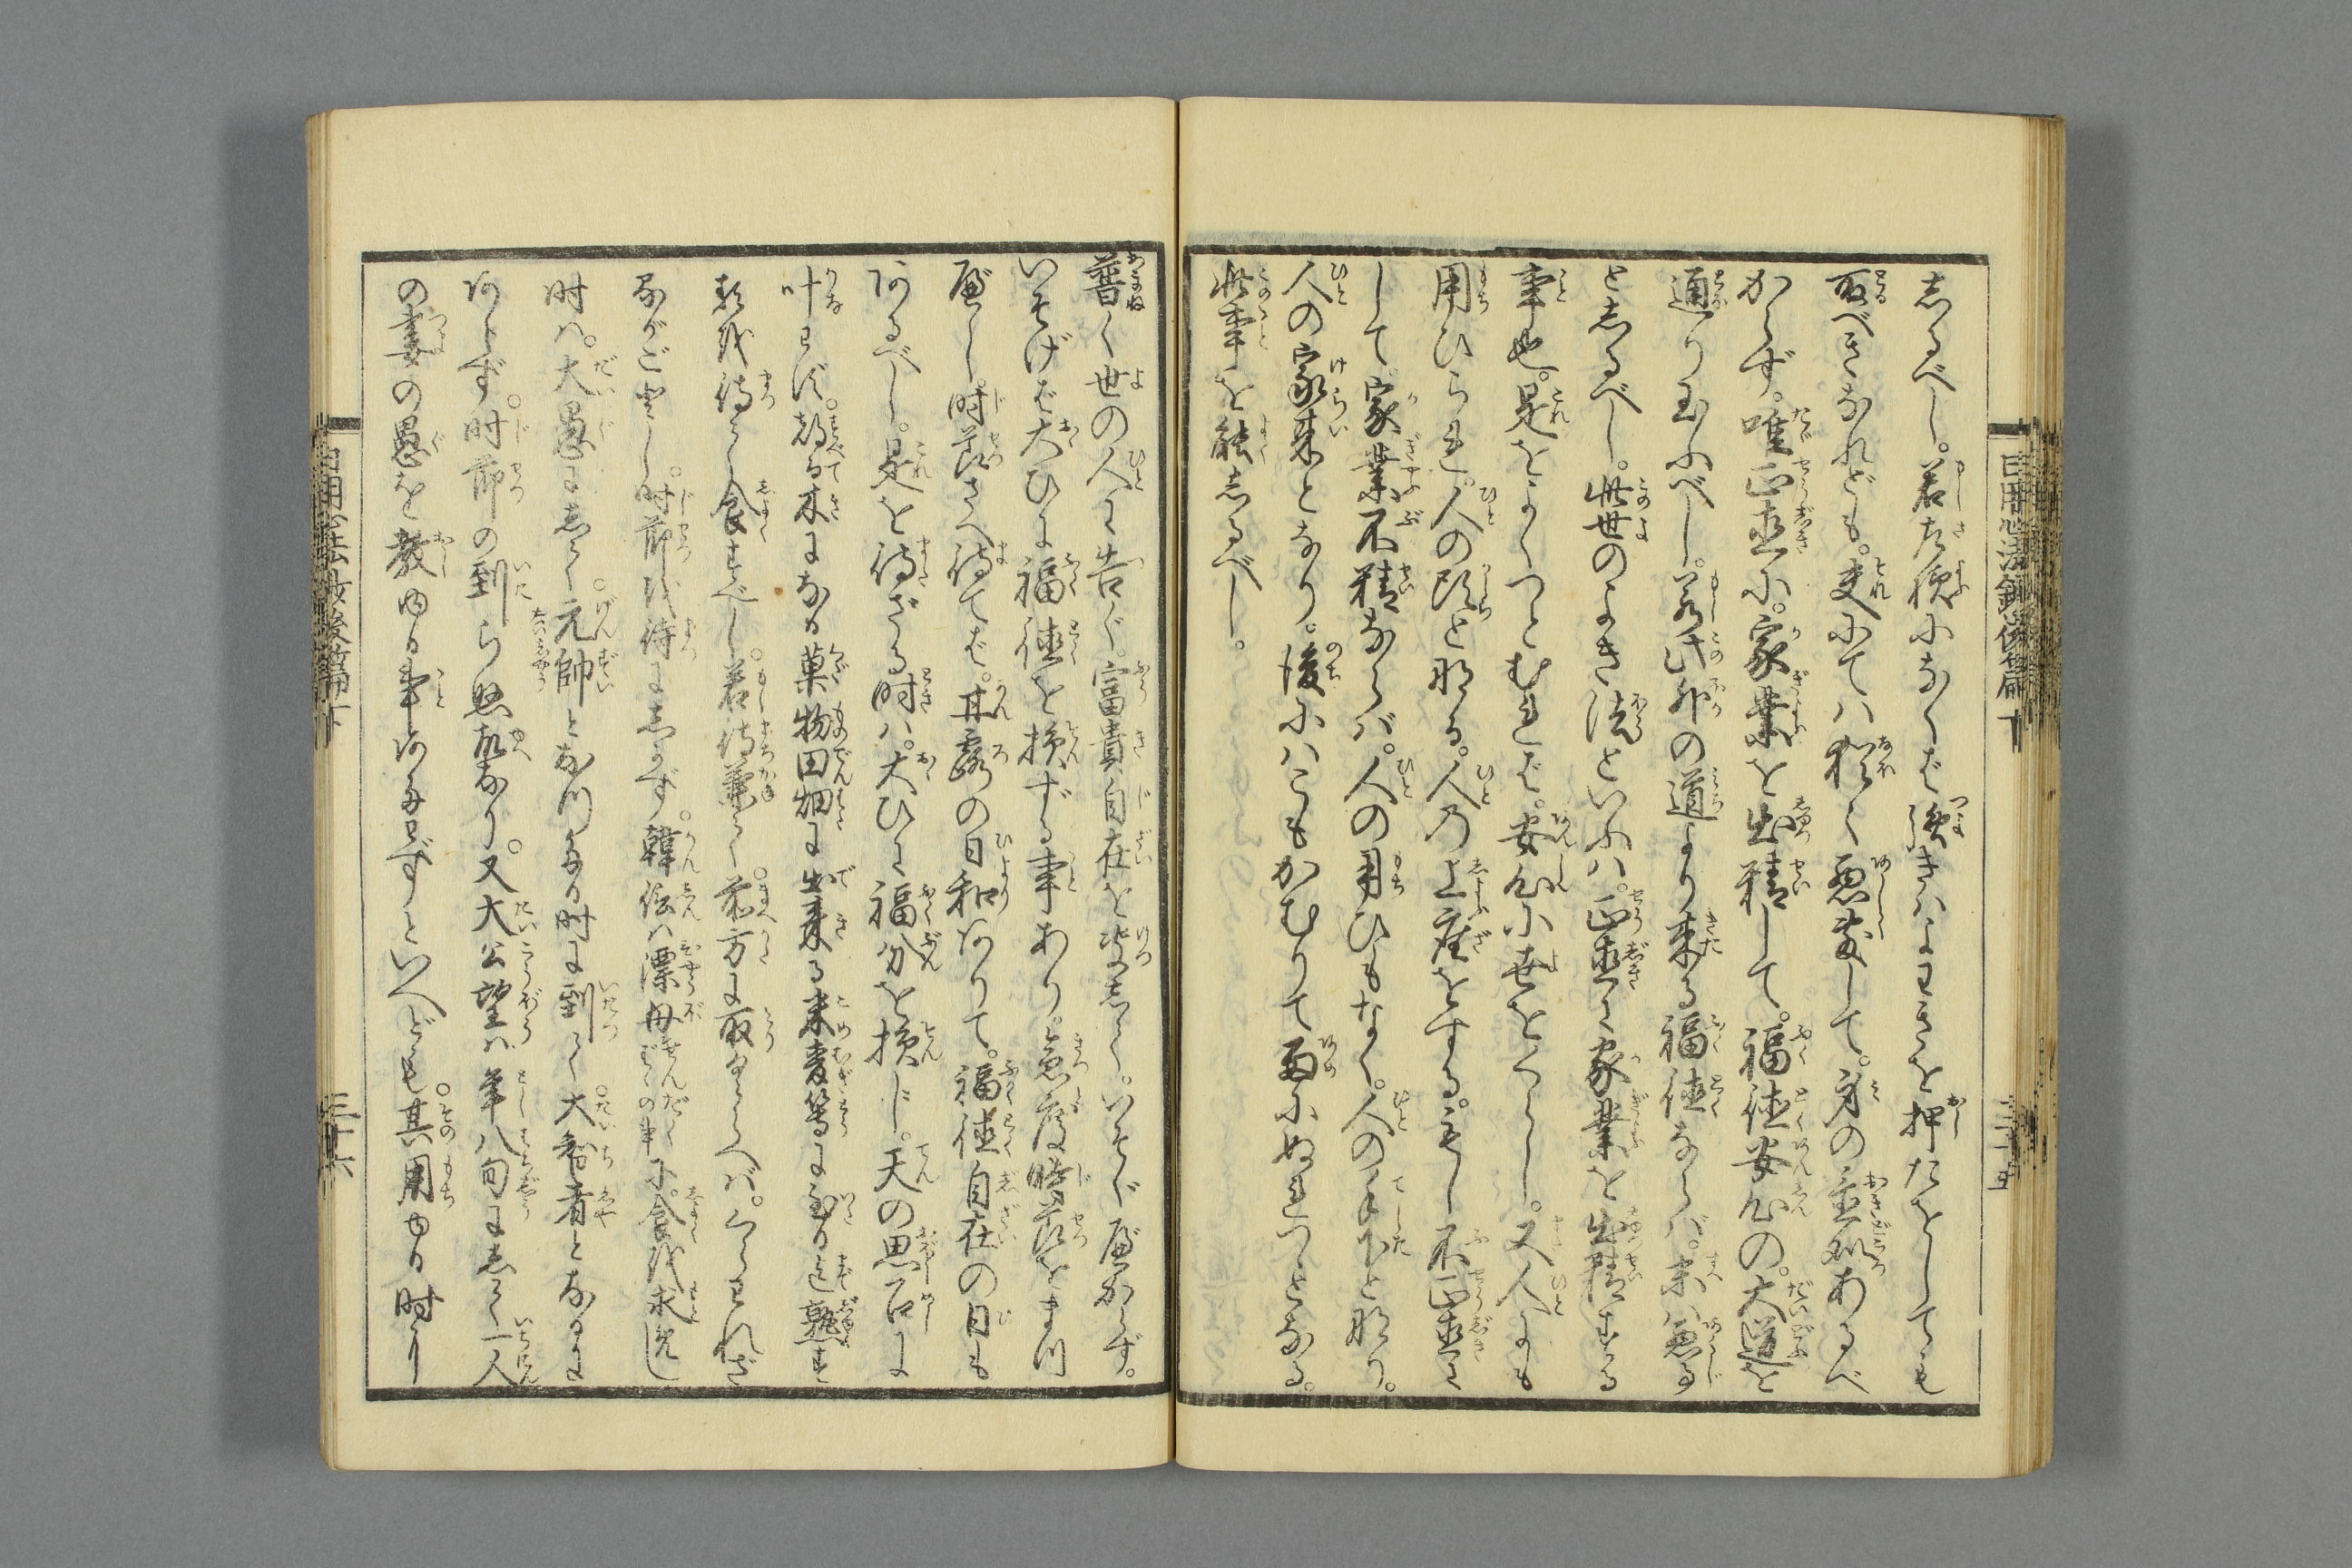 志るべし。若左様になくば強きハよわきを押たをしても
取べきなれども。夫にてハ狼く悪敷して。身の置処あるべ
からず。唯正直に。家業を出精して。福徳安心の。大道を
通り玉ふべし。若此外の道より来る福徳ならバ。末ハ悪る
と志るべし。此世のよき法といふハ。正直に家業を出精する
事也。是をよくつとむれば。安心に世をくらし。又人にも
用ひられ。人の頭と成る。人の上座をする。もし不正直に
して。家業不精ならバ。人の用ひもなく。人の手下と成り。
人の家来となり。後にハこもかむりて雨にぬれつゝとなる。
此事を能志るべし。
日用心法鈔後篇下
三十五
普く世の人に告ぐ。富貴自在を决志て。いそぐ度からず。
いそげば大ひに福徳を損ずる事あり。急度時節をま川
度し。時節さへ待てば。甘露の日和ありて。福徳自在の日も
あるべし。是を待ざる時ハ。大ひに福分を損じ。天の思召に
叶わず。都て木になる菓物田畑に出来る米麦等に至る迄熟す
頃を待て食すべし。若待兼て。前方に取くらへバ。くらわれざ
るがごとし。時節を待に志かず。韓信ハ漂母せんだくばゞの事に食を求し
時ハ。大愚に志て。元帥大しやうとな川たる時に到て。大智者となるに
あらず。時節の到ら然故なり。又大公望ハ年八旬に志て一人
の妻の愚を教ゆる事あたわずといへども。其用ゆる時に
日用心法鈔後篇下
三十六